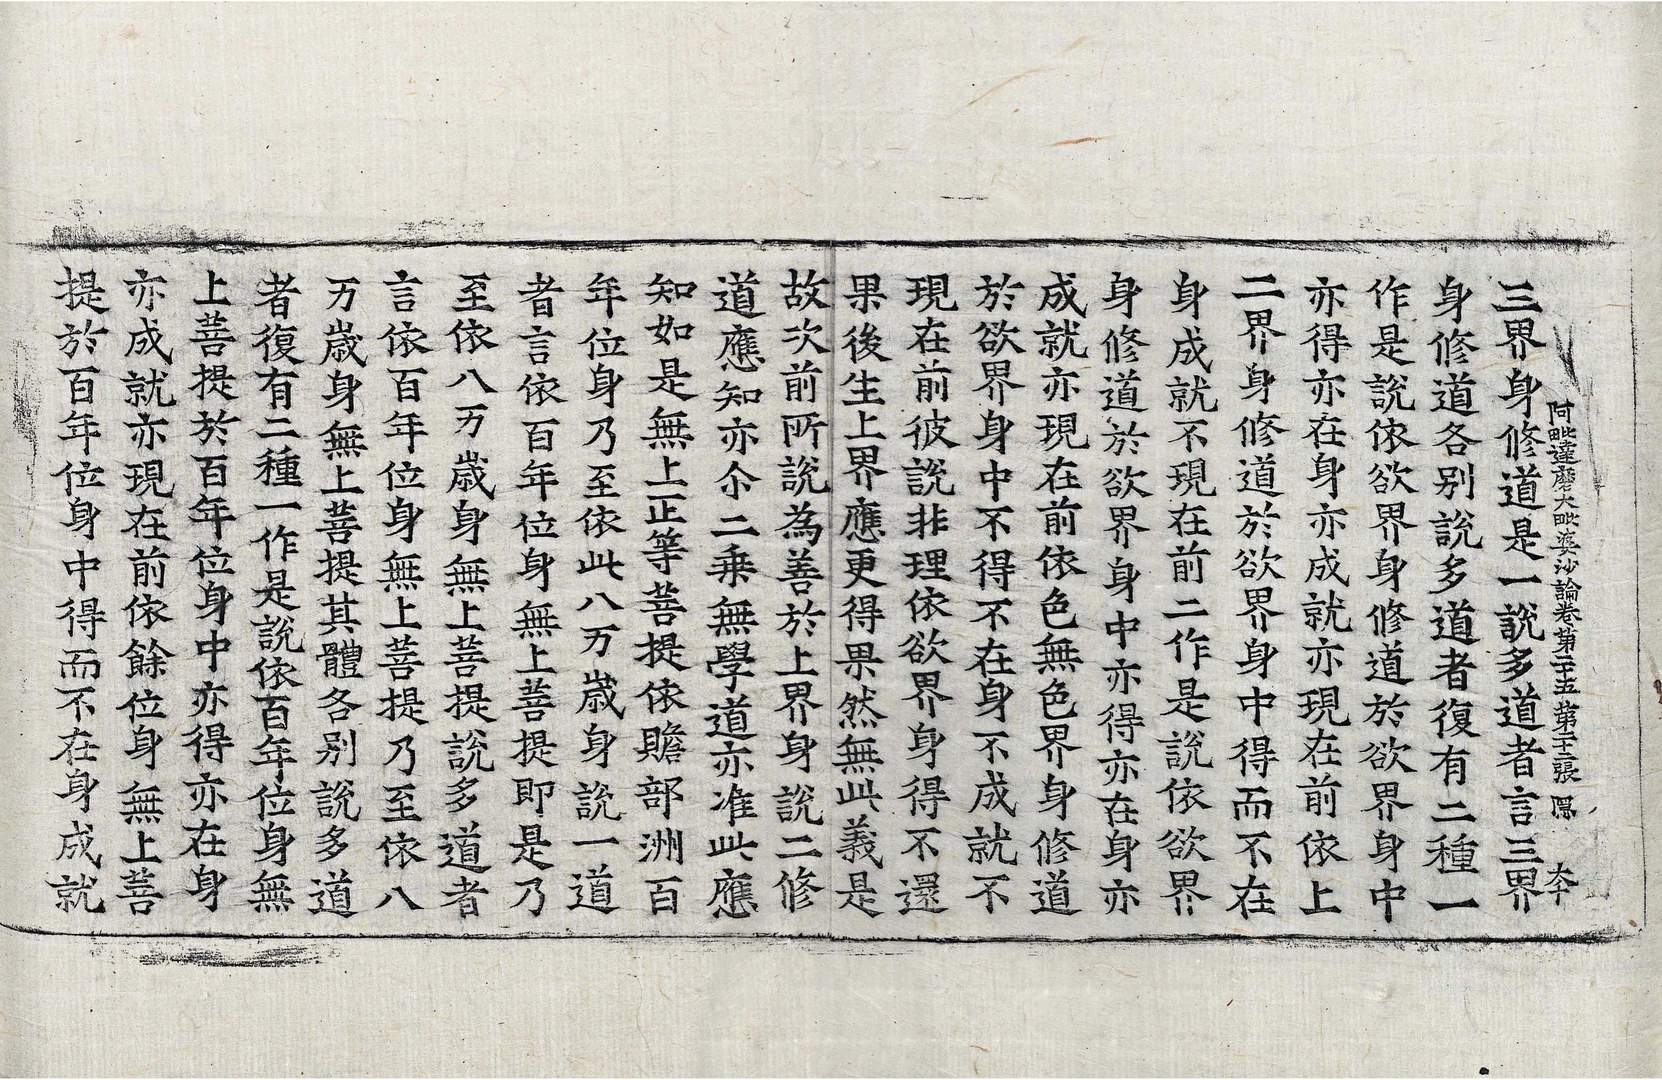 阿毗達磨大毗婆沙論卷第三十五 第二十二張
三界身修道是一說多道者言三界
身修道各別說多道者復有二種一
作是說依欲界身修道於欲界身中
亦得亦在身亦成就亦現在前依上
二界身修道於欲界身中得而不在
身成就不現在前二作是說依欲界
身修道於欲界身中亦得亦在身亦
成就亦現在前依色無色界身修道
於欲界身中不得不在身不成就不
現在前彼說非理依欲界身得不還
果後生上界應更得果然無此義是
故次前所說為善於上界身說二修
道應知亦尒二乗無學道亦准此應
知如是無上正等菩提依贍部洲百
年位身乃至依此八万歲身說一道
者言依百年位身無上菩提即是乃
至依八万歲身無上菩提說多道者
言依百年位身無上菩提乃至依八
万歲身無上菩提其體各別說多道
者復有二種一作是說依百年位身無
上菩提於百年位身中亦得亦在身
亦成就亦現在前依餘位身無上菩
提於百年位身中得而不在身成就